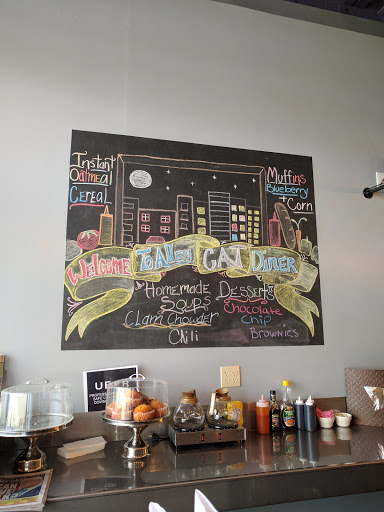 Instant
Oatmeal
Cereal
Muffins
Blueberry
+ Corn
Welcome To Alley Cat Diner
Homemade
Soups
Clam Chowder
Chili
Desserts
Chocolate
Chip
Brownies